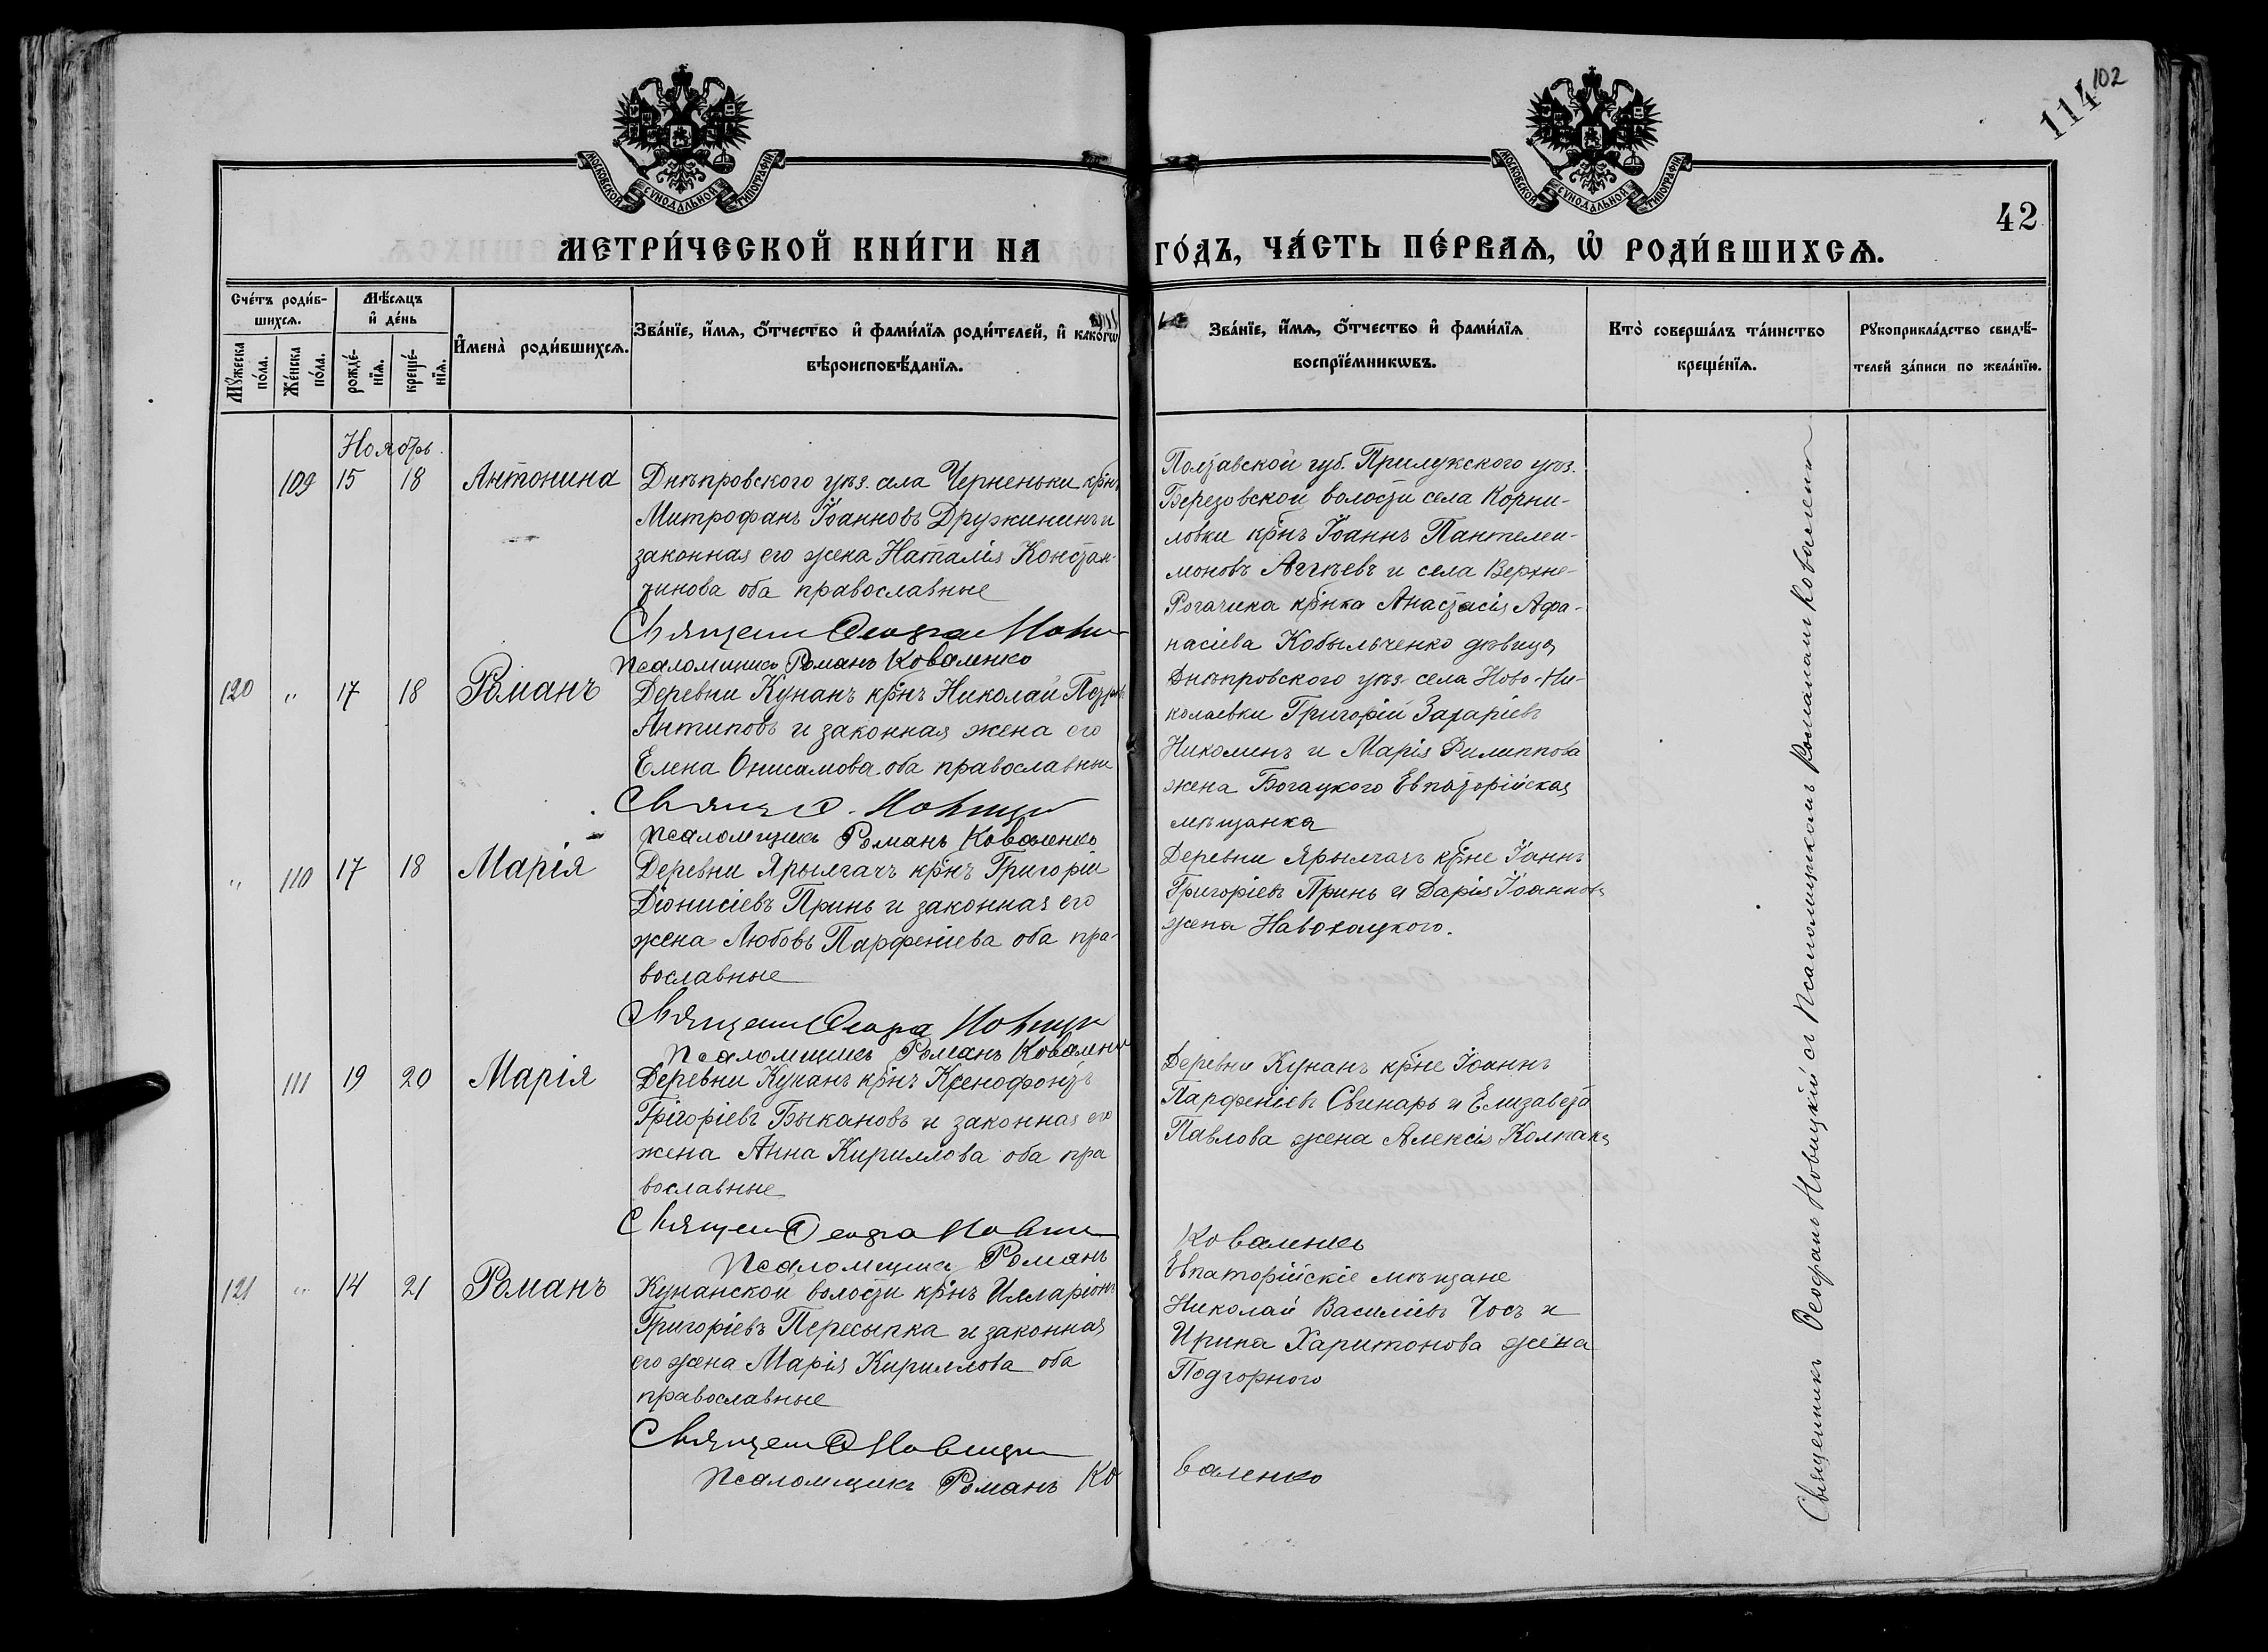 102
114
42
МОСКОВСКОЙ СУНОДАЛЬНОЙ ТИПОГРАФІИ
МОСКОВСКОЙ СУНОДАЛЬНОЙ ТИПОГРАФІИ
МЕТРИ́ЧЕСКОЙ КНИ́ГИ НА ГО́ДЪ, ЧА́СТЬ ПЕ́РВАѦ, Ѡ҆ РОДИ́ВШИХСѦ.
Сче́тъ роди́в-
шихсѧ.
Мꙋ́жеска по́ла.
Же́нска по́ла.
Мѣ́сѧцъ
и҆ де́нь
рожде́-
нїѧ.
креще́-
нїѧ.
И҆мена̀ роди́вшихсѧ.
Зва́нїе, и҆́мѧ, ѻ҆́тчество и҆ фами́лїѧ роди́телей, и҆ како́гѡ
вѣроисповѣ́данїѧ.
Зва́нїе, и҆́мѧ, ѻ҆́тчество и҆ фами́лїѧ
воспрїе́мникѡвъ.
Кто̀ соверша́лъ та́инство
креще́нїѧ.
Рꙋкоприкла́дство свидѣ́-
телей за́писи по жела́нїю.
Ноябрь.
109 15 18 Антонина
Днѣпровского уѣз. села Черненьки крнъ
Митрофанъ Іоанновъ Дружининъ и
законная его жена Наталія Констан-
тинова оба православные
Священ Ѳеофа Нови
Псаломщикъ Романъ Коваленко
Полтавской губ. Прилукского уѣз.
Березовской волости села Корни-
ловки крнъ Іоаннъ Пантелеи-
моновъ Аггѣевъ и села Верхне-
Рогачика крнка Анастасія Афа-
насіева Кобыльченко дѣвица
120 " 17 18 Романъ
Деревни Кунанъ крнъ Николай Петровъ
Антиповъ и законная жена его
Елена Онисимова оба православные
Свящ Ѳ. Новицк
Псаломщикъ Романъ Коваленко
Днѣпровского уѣз. села Ново-Ни-
колаевки Григорій Захаріевъ
Николинъ и Марія Филиппова
жена Богацкого Евпаторійская
мѣщанка
" 110 17 18 Марія
Деревни Ярылгачъ крнъ Григорій
Діонисіевъ Принь и законная его
жена Любовь Парфеніева оба пра-
вославные
Священ Ѳеофа Новицк
Псаломщикъ Романъ Коваленко
Деревни Ярылгачъ крне Іоаннъ
Григоріевъ Принь и Дарія Іоаннова
жена Навокацкого.
111 19 20 Марія
Деревни Кунанъ крнъ Ксенофонтъ
Григоріевъ Быкановъ и законная его
жена Анна Кириллова оба пра
вославные
Священ Ѳеофа Нови
Псаломщикъ Романъ Коваленко
Деревни Кунанъ крне Іоаннъ
Парфеніевъ Свинарь и Елизавета
Павлова жена Алексія Колпака
121 " 14 21 Романъ
Кунанской волости крнъ Илларіонъ
Григоріевъ Пересыпка и законная
его жена Марія Кириллова оба
православные
Священ Ѳ Новицк
Псаломщикъ Романъ Коваленко
Евпаторійскіе мѣщане
Николай Василіевъ Чосъ и
Ирина Харитонова жена
Подгорного
Священникъ Ѳеофанъ Новицкій съ псаломщикомъ Романомъ Коваленко